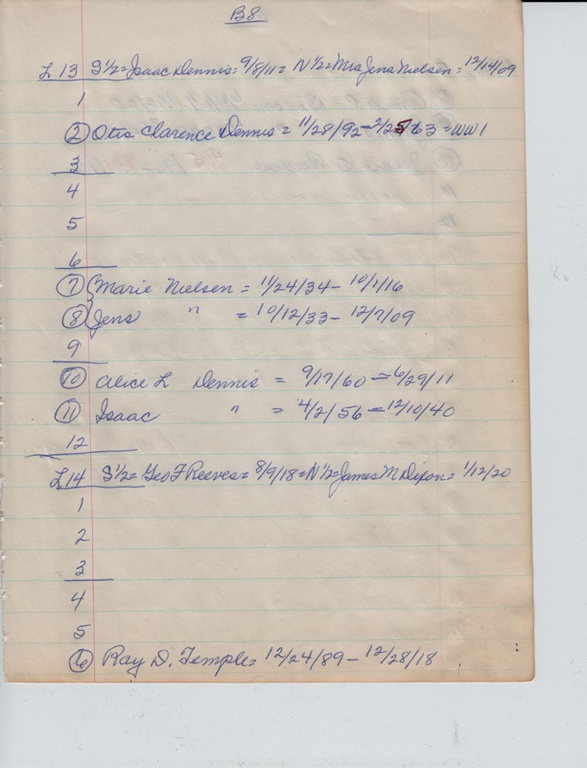 B8
L 13 S½ = Isaac Dennis = 9/8/11 = N½ = Mrs Jens Nielsen = 12/14/09
1
② Otis Clarence Dennis = 11/28/92 – 2/25/63 = WW1
3
4
5
6
⑦ Marie Nielsen = 11/24/34 – 10/1/16
⑧ Jens " = 10/12/33 – 12/7/09
9
⑩ Alice L Dennis = 9/17/60 = 6/29/11
⑪ Isaac " = 4/2/56 = 12/10/40
12
L 14 S½ = Geo F Reeves = 8/9/18 = N½ = James M Dixon = 1/12/20
1
2
3
4
5
⑥ Ray D. Temple = 12/24/89 – 12/28/18